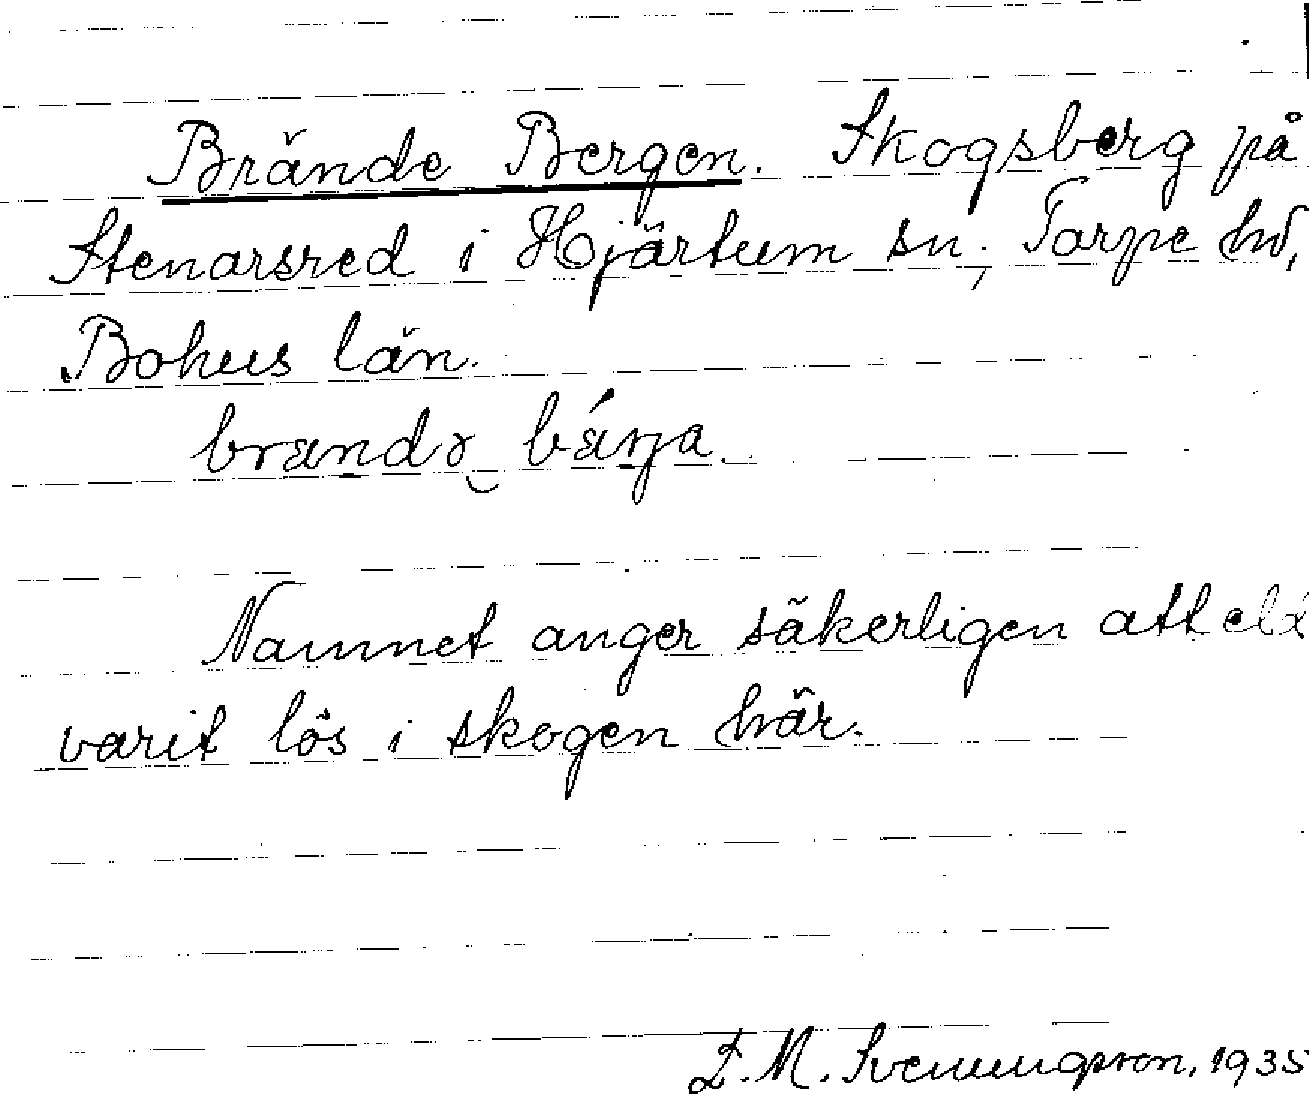 Brände Bergen. Skogsberg på
Stenarsred i Hjärtum sn, Torpe hd,
Bohus län.
Namnet anger säkerligen att eld
varit lös i skogen här.
E. M. Svenningsson, 1935